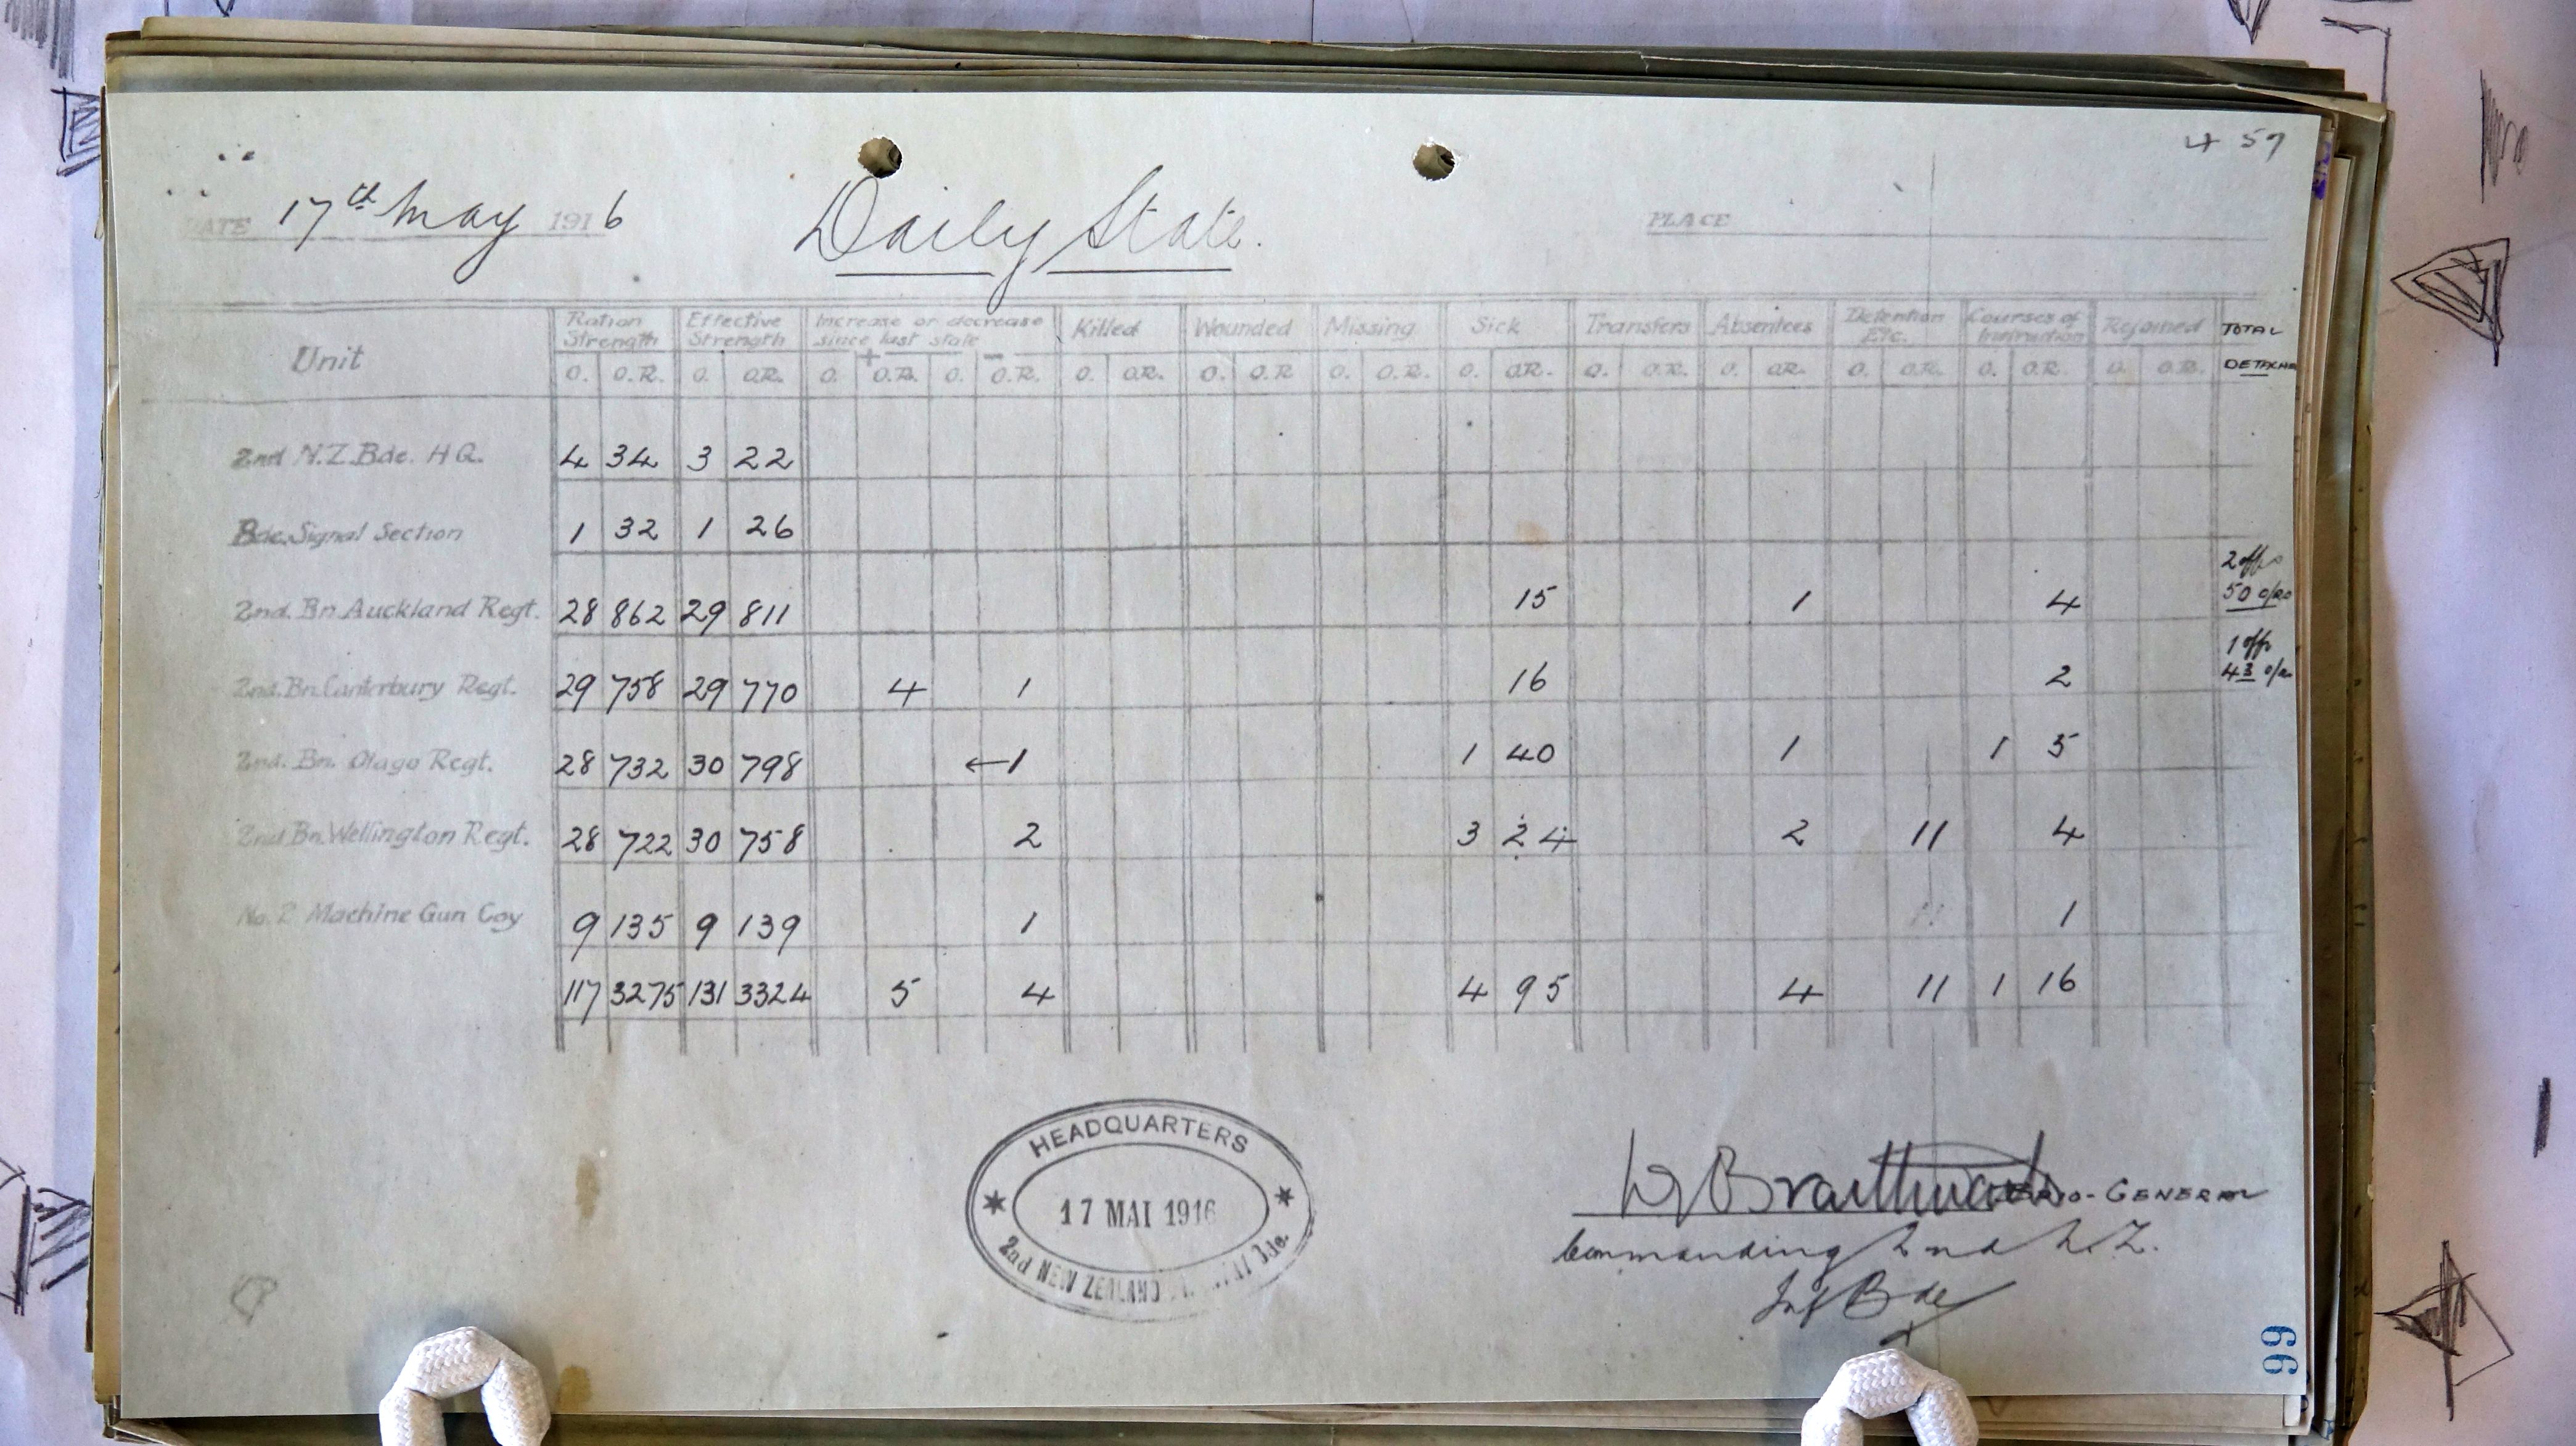 4 57
DATE 17th May 1916 Daily State. PLACE
Unit Ration Strength Effective Strength Increase or decrease since last state + - Killed Wounded Missing Sick Transfers Absentees Detention Etc. Courses of Instruction Rejoined TOTAL
O. O.R. O. O.R. O. O.R. O. O.R. O. O.R. O. O.R O. O.R. O. O.R. O. O.R. O. O.R. O. O.R. O. O.R. O. O.R.
2nd N.Z. Bde. H Q. 4 34 3 22
Bde. Signal Section 1 32 1 26
2nd. Bn. Auckland Regt. 28 862 29 811 15 1 4 2 offrs 50 o/ro
2nd. Bn. Canterbury Regt. 29 758 29 770 4 1 16 2 1 offr 43
2nd. Bn. Otago Regt. 28 732 30 798 ←1 1 40 1 1 5
2nd Bn. Wellington Regt. 28 722 30 758 2 3 24 2 11 4
No. 2 Machine Gun Coy 9 135 9 139 1 1
117 3275 131 3324 5 4 4 95 4 11 1 16
HEADQUARTERS
17 MAI 1916
2nd NEW ZEALAND Bde.
W Braithwaite BRIG-GENERAL
Commanding 2nd N.Z.
Inf Bde
99